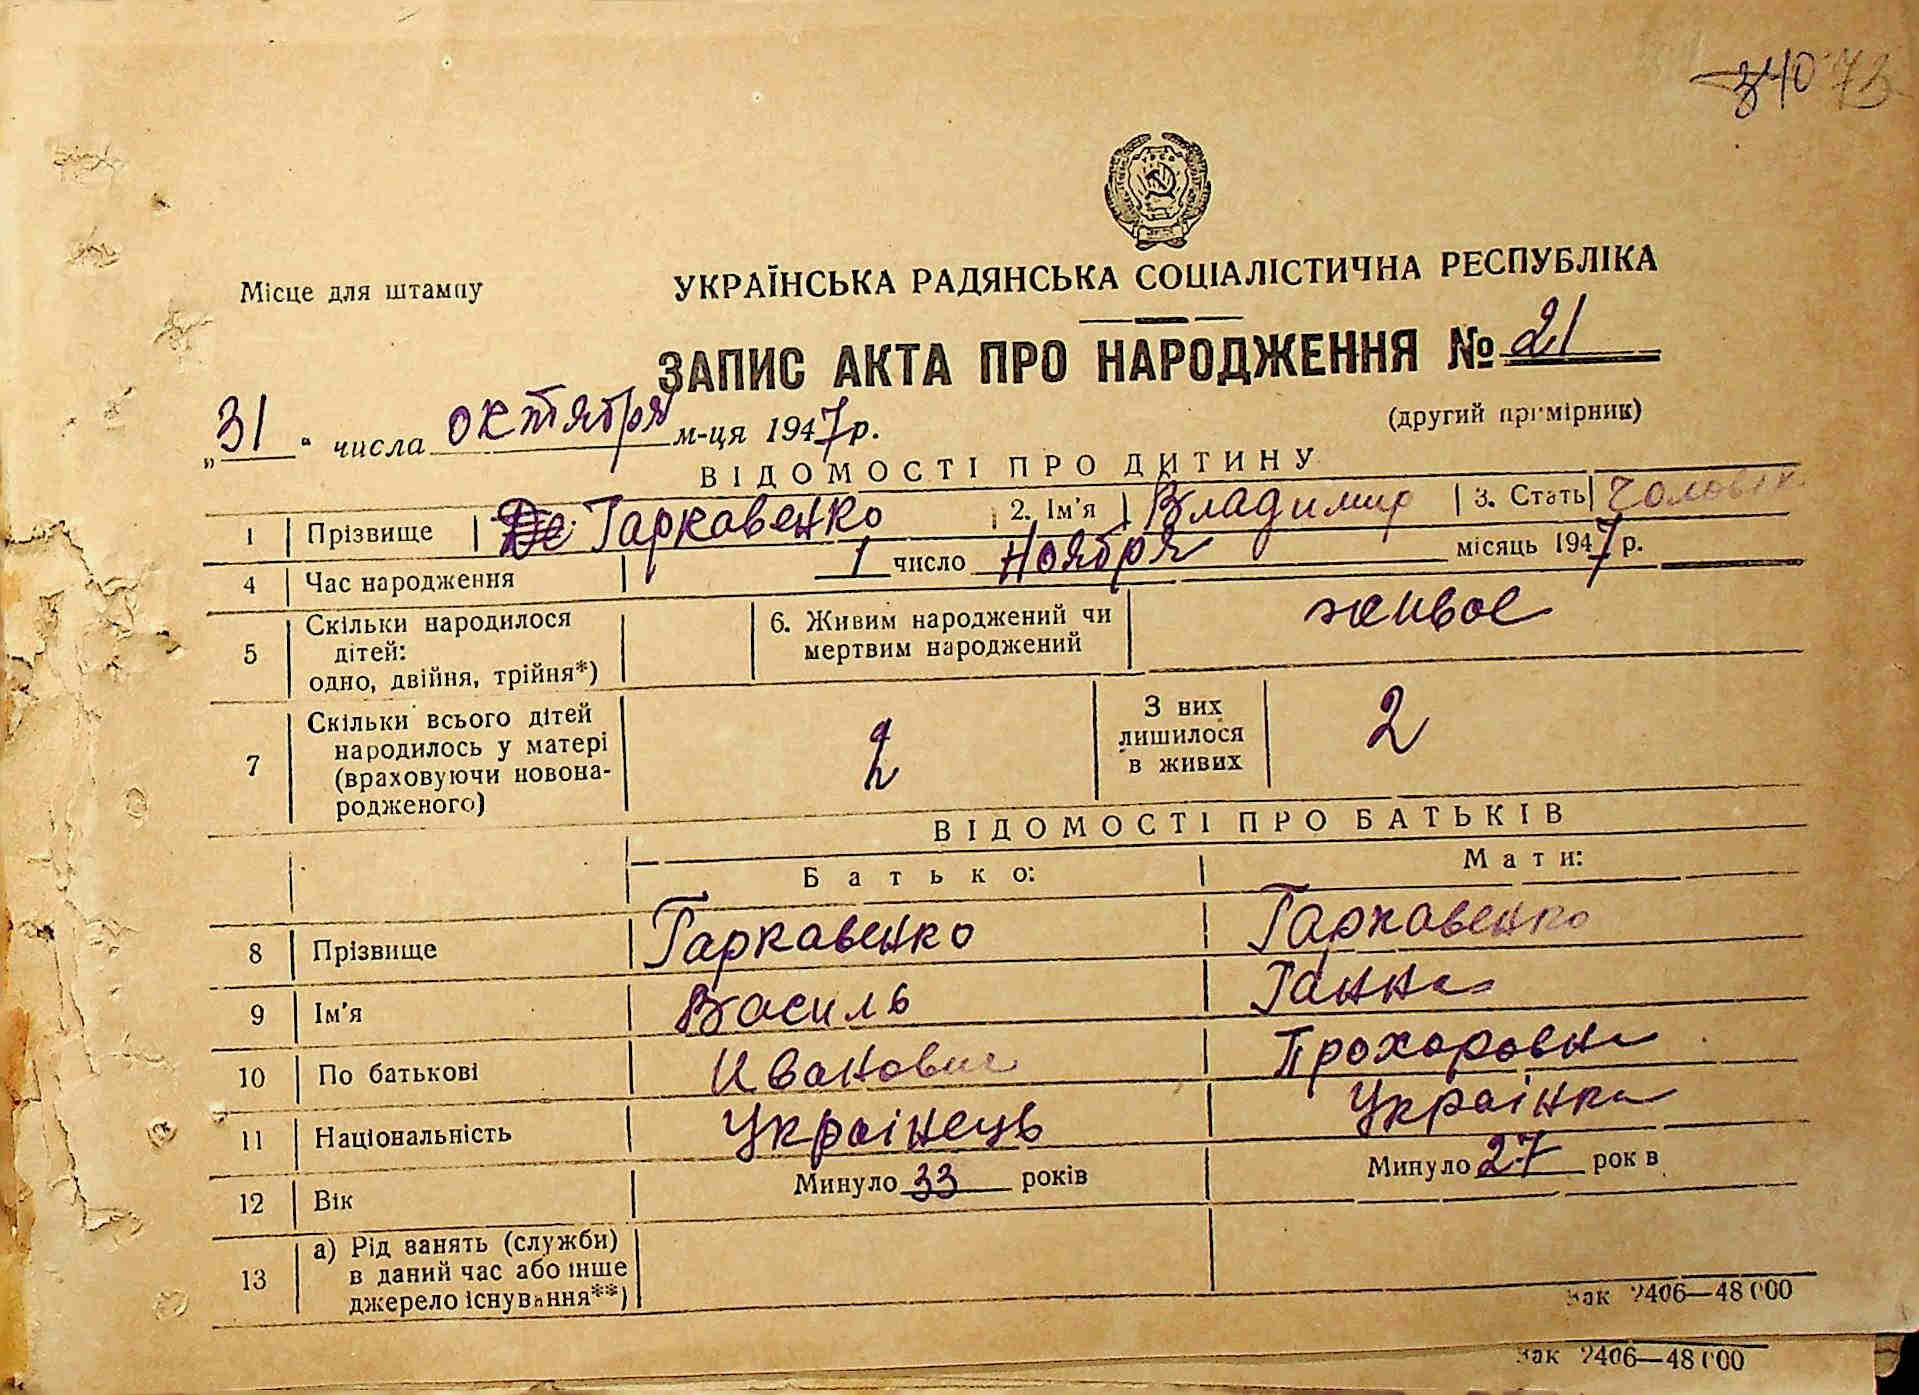 340 73
УРСР
Місце для штампу
УКРАЇНСЬКА РАДЯНСЬКА СОЦІАЛІСТИЧНА РЕСПУБЛІКА
ЗАПИС АКТА ПРО НАРОДЖЕННЯ № 21
(другий примірник)
„31" числа октября м-ця 1947 р.
ВІДОМОСТІ ПРО ДИТИНУ
1 Прізвище Гаркавенко 2. Ім'я Владимир 3. Стать чоловік
4 Час народження 1 число Ноября місяць 1947 р.
5 Скільки народилося дітей: одно, двійня, трійня*) 6. Живим народжений чи мертвим народжений живое
7 Скільки всього дітей народилось у матері (враховуючи новонародженого) 2 З них лишилося в живих 2
ВІДОМОСТІ ПРО БАТЬКІВ
Батько: Мати:
8 Прізвище Гаркавенко Гаркавенко
9 Ім'я Василь Ганна
10 По батькові Иванович Прохоровна
11 Національність Українець Українка
12 Вік Минуло 33 років Минуло 27 рок в
13 а) Рід занять (служби) в даний час або інше джерело існування**)
Зак 2406—48 000
Зак 2406—48 000